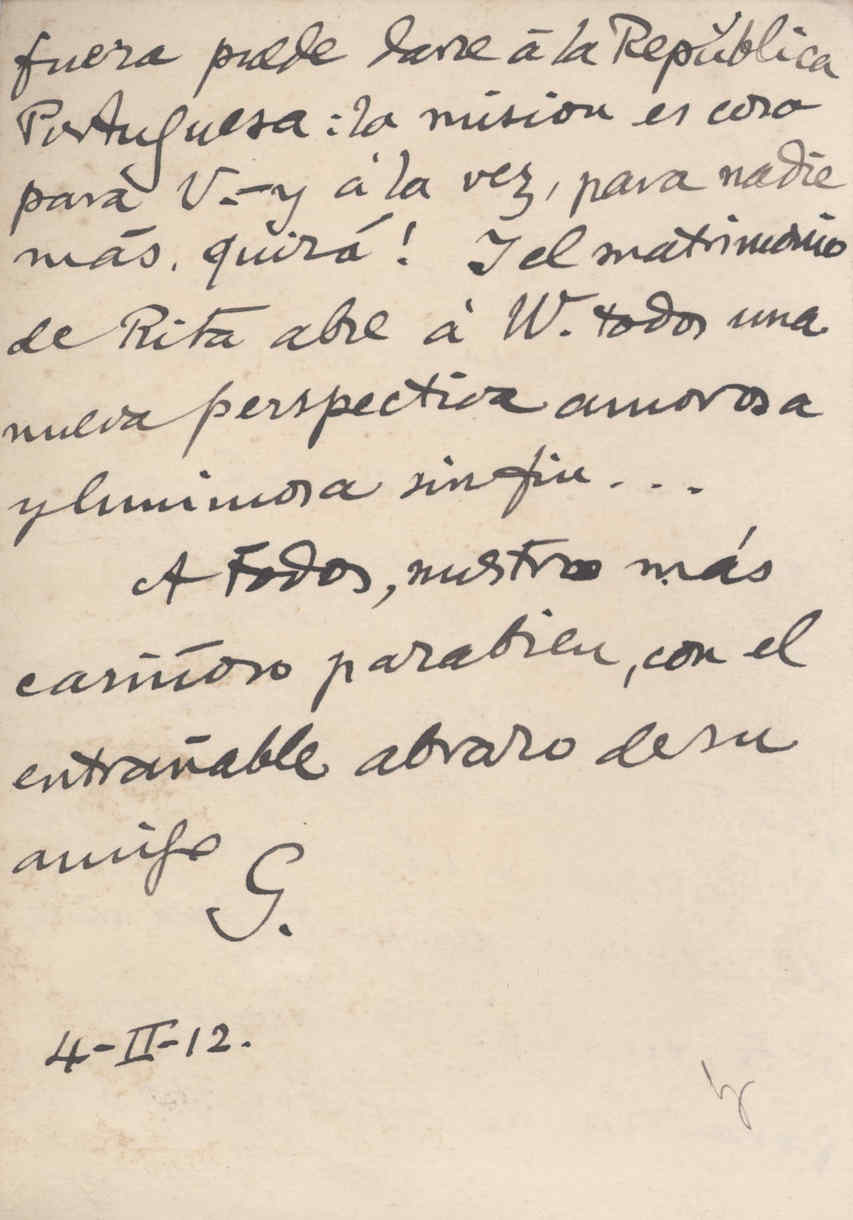 fuera puede darse á la República
Portuguesa: la mision es cosa
para V.—y á la vez, para nadie
más, quizá! Y el matrimonio
de Rita abre á VV. todos una
nueva perspectiva amorosa
y luminosa sin fin...
A todos, nuestro más
cariñoso parabien, con el
entrañable abrazo de su
amigo
G.
4-II-12.